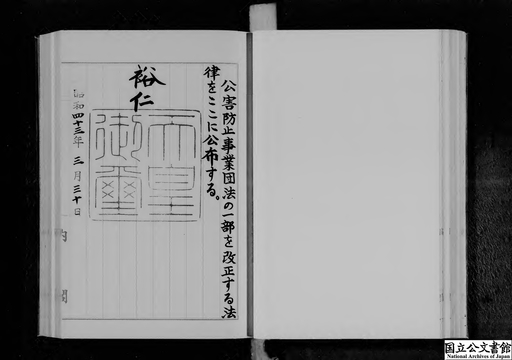 公害防止事業団法の一部を改正する法
律をここに公布する。
裕仁
天皇
御璽
昭和四十三年三月三十日
内閣
国立公文書館
National Archives of Japan